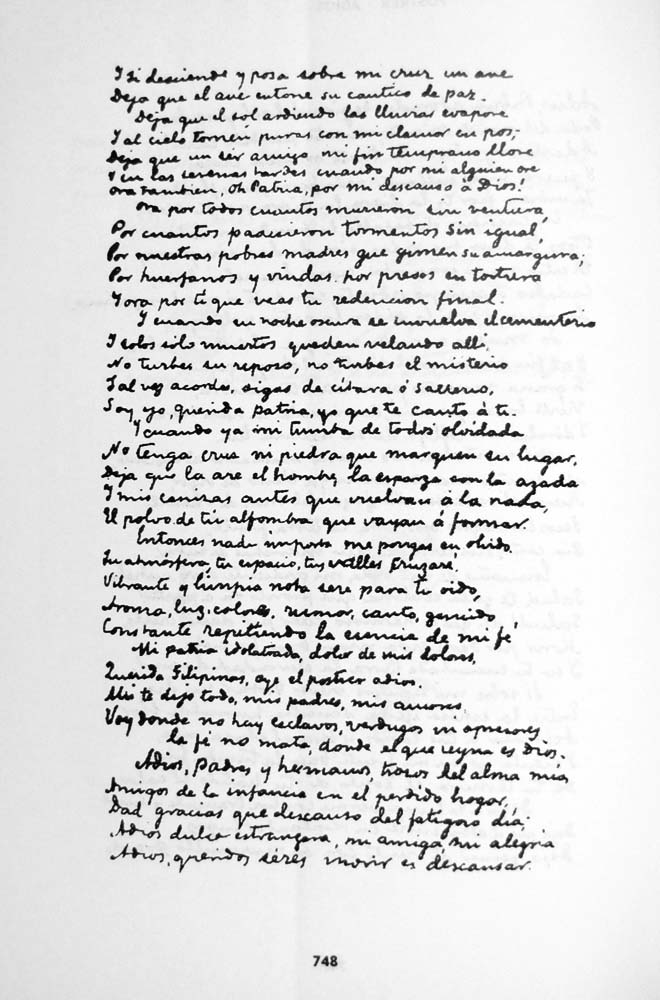 Y si desciende y posa sobre mi cruz un ave
Deja que el ave entone su cantico de paz.
Deja que el sol ardiendo las lluvias evapore
Y al cielo tornen puras con mi clamor en pos;
Deja que un sér amigo mi fin temprano llore
Y en las serenas tardes cuando por mi alguien ore
Ora tambien, Oh Patria, por mi descanso á Dios!
Ora por todos cuantos murieron sin ventura,
Por cuantos padecieron tormentos sin igual,
Por nuestras pobres madres que gimen su amargura;
Por huerfanos y viudas, por presos en tortura
Y ora por ti que veas tu redencion final.
Y cuando en noche oscura se envuelva el cementerio
Y solos sólo muertos queden velando allí,
No turbes su reposo, no turbes el misterio
Tal vez acordes, oigas de citara ó salterio,
Soy yo, querida patria, yo que te canto á ti.
Y cuando ya mi tumba de todos olvidada
No tenga cruz ni piedra que marquen su lugar,
Deja que la are el hombre, la esparza con la azada
Y mis cenizas antes que vuelvan á la nada,
El polvo de tu alfombra que vayan á formar.
Entonces nada importa me pongas en olvido.
Tu atmósfera, tu espacio, tus valles cruzaré.
Vibrante y limpia nota seré para tu oido,
Aroma, luz, colores, rumor, canto, gemido
Constante repitiendo la esencia de mi fé
Mi patria idolatrada, dolor de mis dolores,
Querida Filipinas, oye el postrer adios,
Ahi te dejo todo, mis padres, mis amores
Voy donde no hay esclavos, verdugos ni opresores
la fé no mata, donde el que reyna es Dios.
Adios, padres y hermanos, trozos del alma mia,
Amigos de la infancia en el perdido hogar,
Dad gracias que descanso del fatigoso dia;
Adios dulce estrangera, mi amiga, mi alegria
Adios, queridos séres morir es descansar.
748